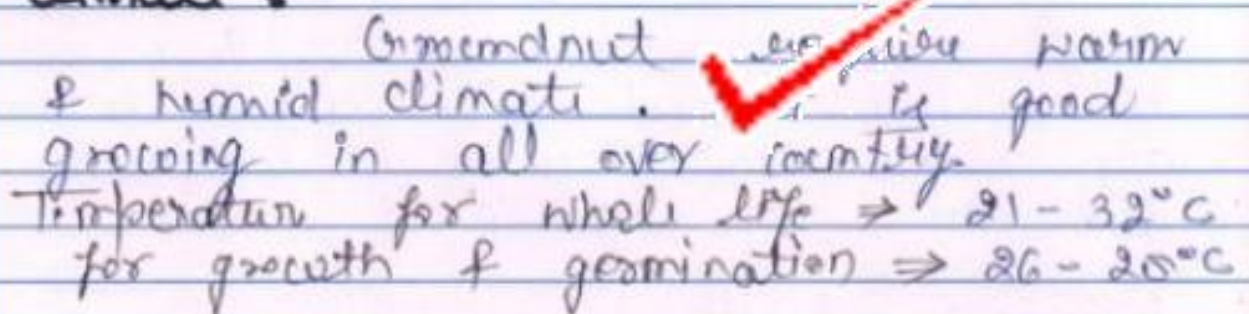 Groundnut require warm
& humid climate. is good
growing in all over country.
Temperature for whole life ⇒ 21 - 32°C
for growth & germination ⇒ 26 - °C